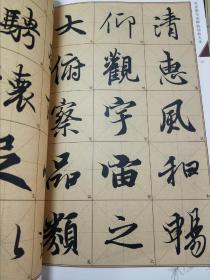 清惠風和暢
仰觀宇宙之
大俯察品類
騁懷足